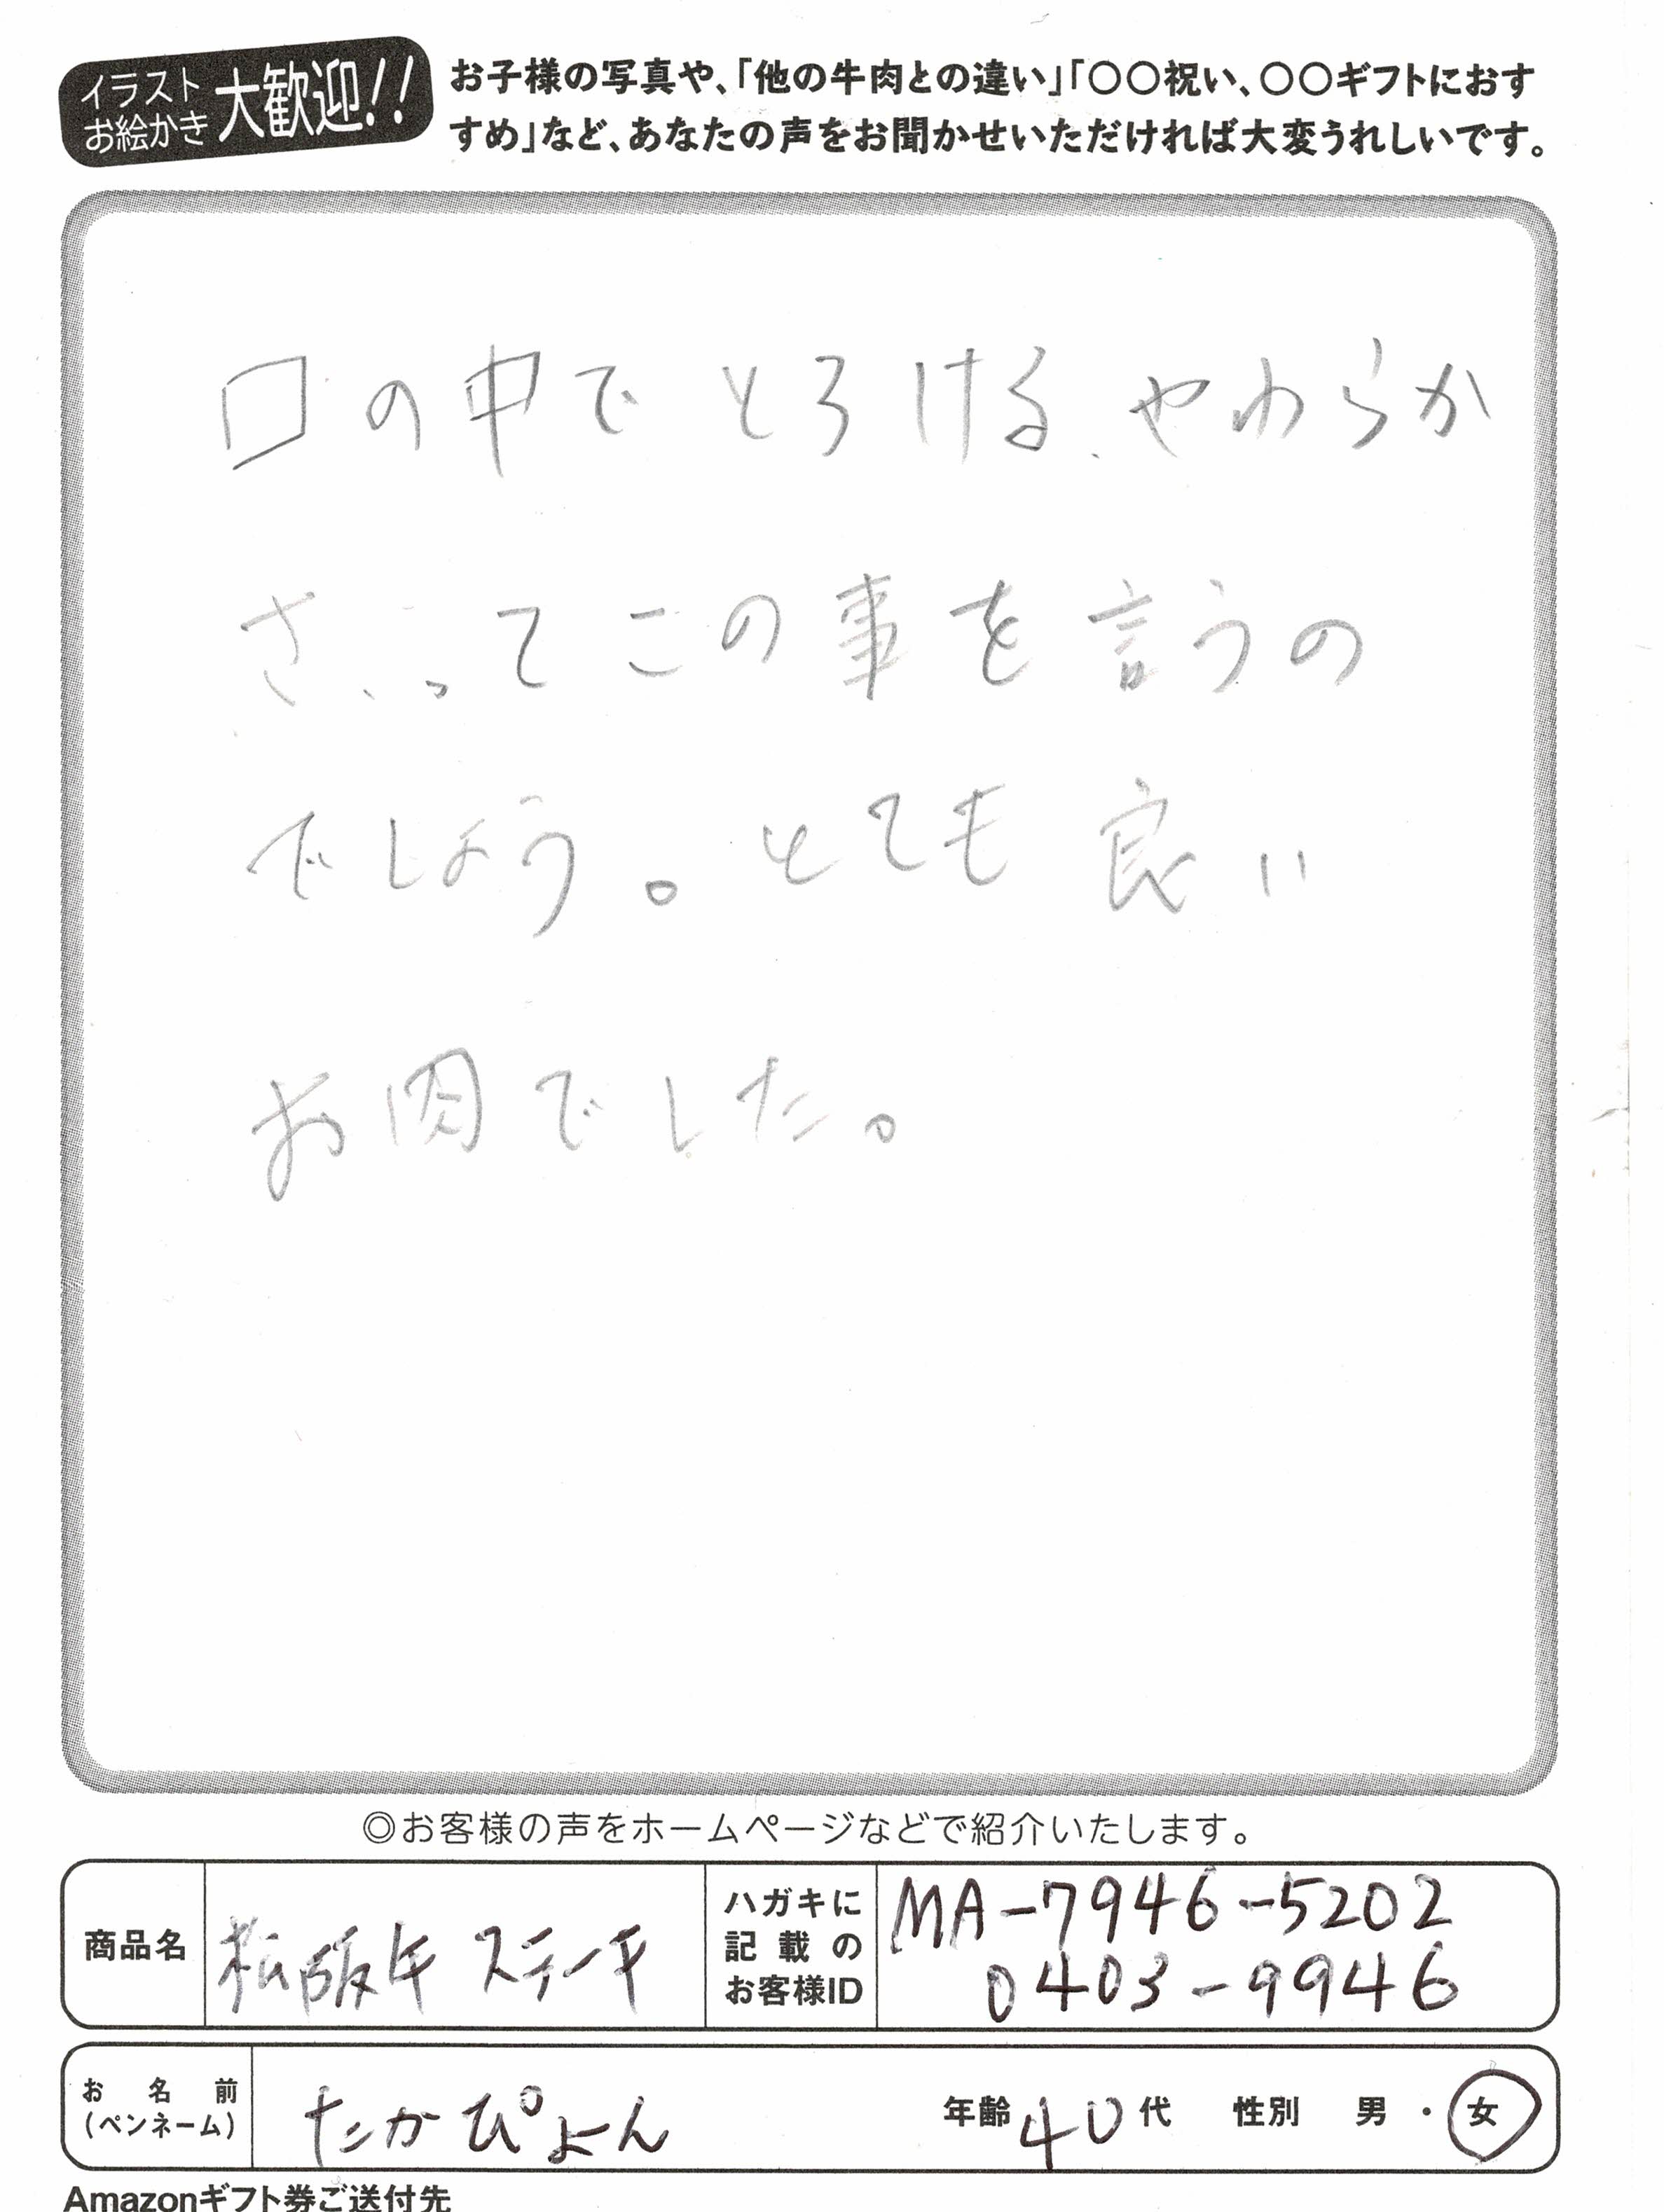 イラスト
お絵かき
大歓迎!!
お子様の写真や、「他の牛肉との違い」「〇〇祝い、〇〇ギフトにおす
すめ」など、あなたの声をお聞かせいただければ大変うれしいです。
口の中でとろける、やわらか
さ、ってこの事を言うの
でしょう。とても良い
お肉でした。
◎お客様の声をホームページなどで紹介いたします。
商品名
松阪牛 ステーキ
ハガキに
記載の
お客様ID
MA-7946-5202
0403-9946
お名前
(ペンネーム)
たかぴょん
年齢 40代 性別 男・女
Amazonギフト券ご送付先